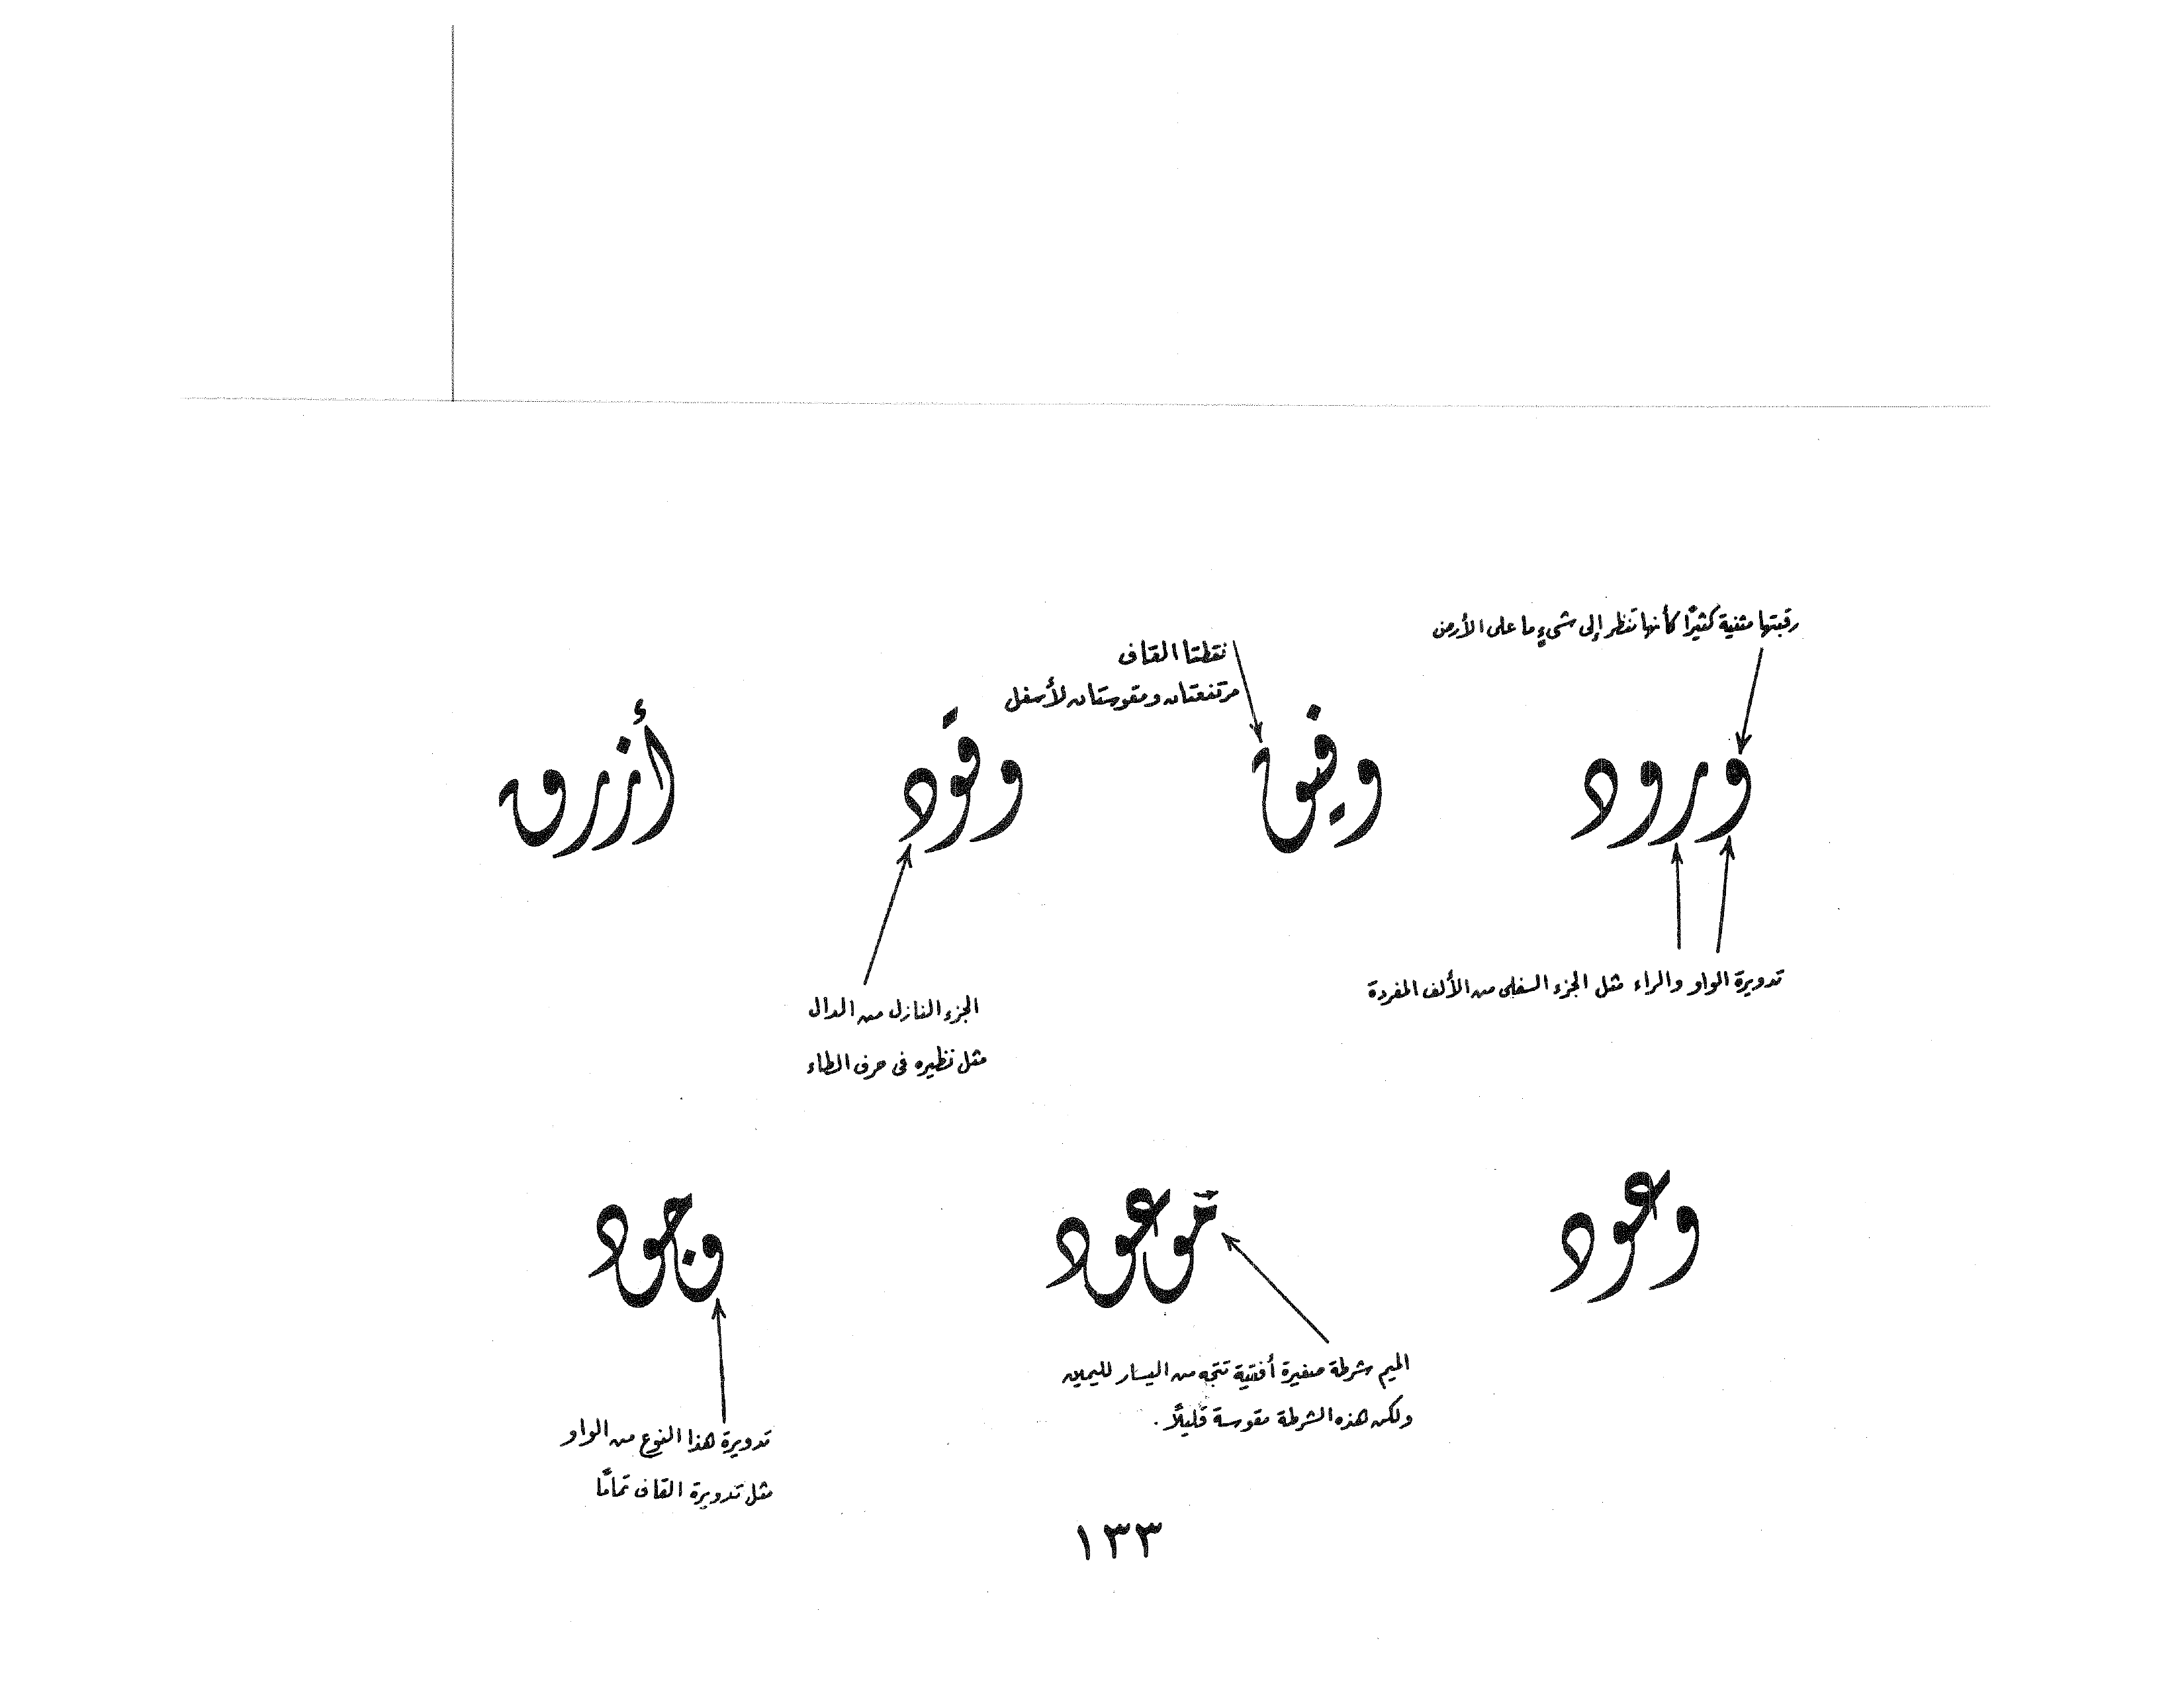 رقبتها مثنية كثيرًا كأنها تنظر إلى شيءٍ ما على الأرض
نقطتا القاف
مرتفعتان ومقوستان لأسفل
ورود
وفيق
وقود
أزرق
تدويرة الواو والراء مثل الجزء السفلى من الألف المفردة
الجزء النازل من الدال
مثل نظيره فى حرف الطاء
وعود
موعود
وجود
الميم شرطة صغيرة أفقية تتجه من اليسار لليمين
ولكن هذه الشرطة مقوسة قليلاً .
تدويرة هذا النوع من الواو
مثل تدويرة القاف تمامًا
١٣٣